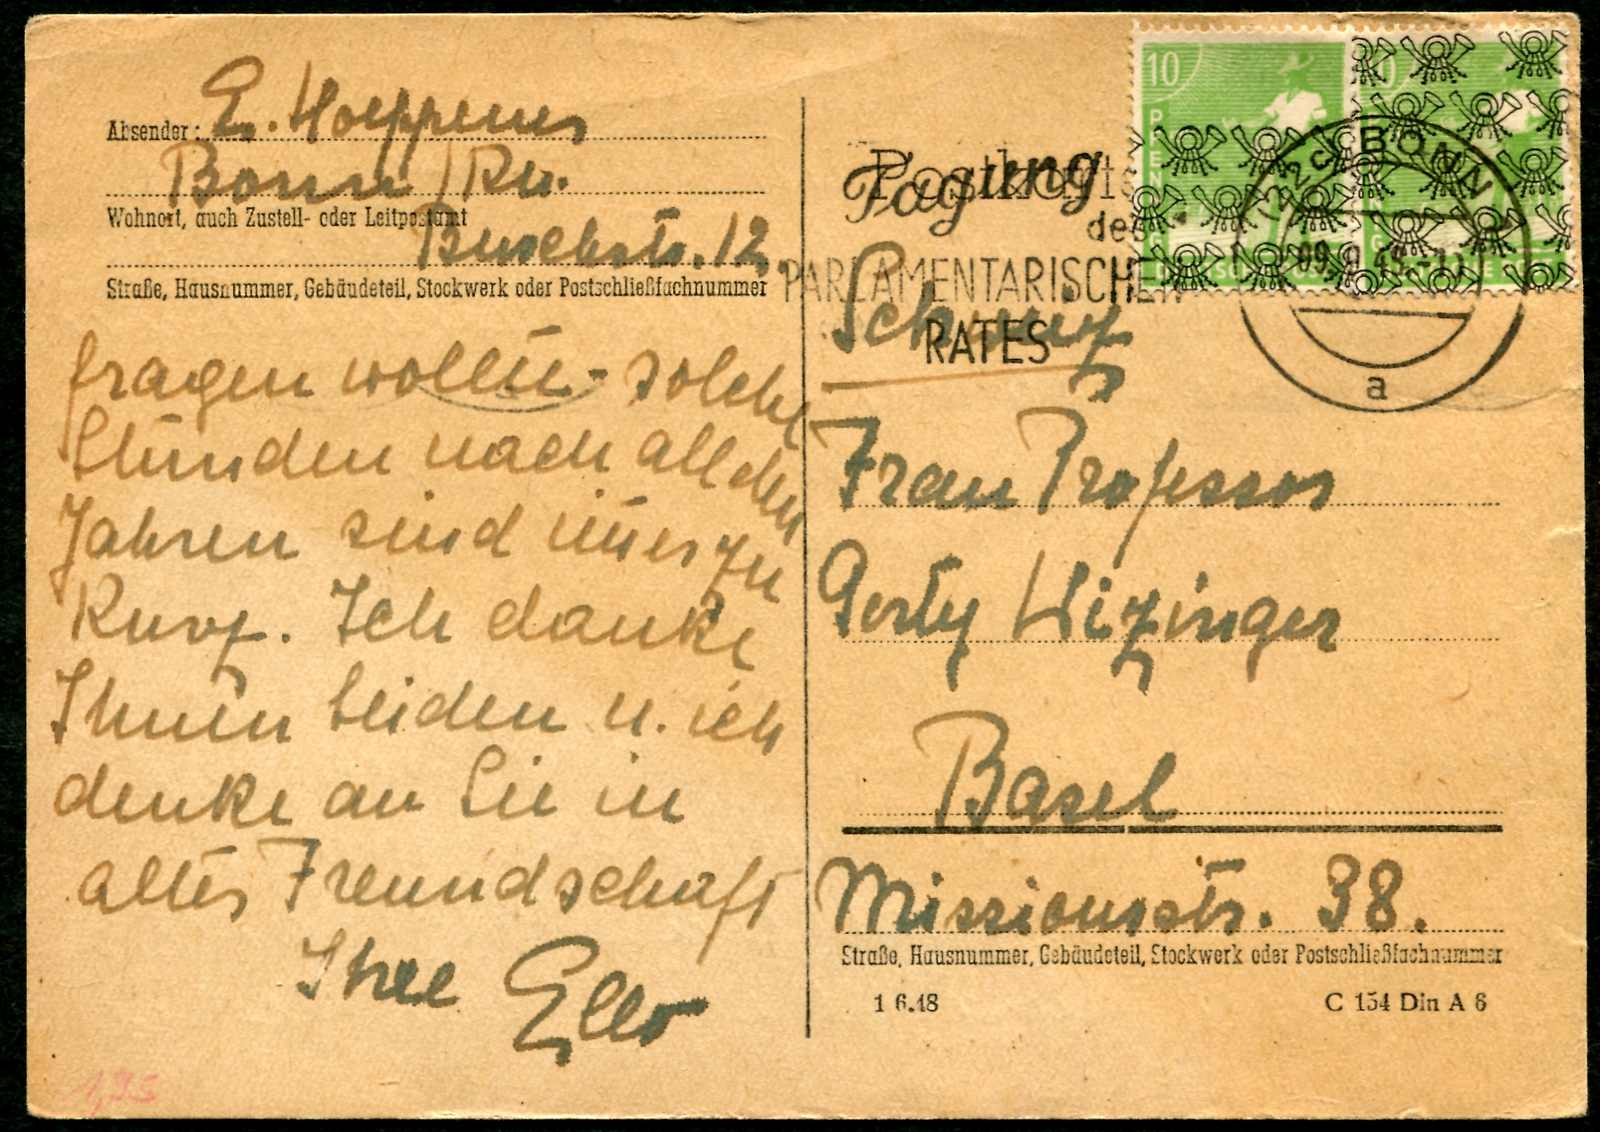 Absender: E. Hoeppener
Bonn/Rh.
Wohnort, auch Zustell- oder Leitpostamt
Buschstr. 12.
Straße, Hausnummer, Gebäudeteil, Stockwerk oder Postschließfachnummer
fragen wollen - solche
Stunden nach all den
Jahren sind immer zu
kurz. Ich danke
Ihnen beiden u. ich
denke an Sie in
alter Freundschaft
Ihre Ello
1,25
Postkarte
Tagung
des
PARLAMENTARISCHEN
RATES
10
PFENNIG
DEUTSCHE POST
(22c) BONN
a
Schweiz
Frau Professor
Gerty Wizinger
Basel
Missionsstr. 38.
Straße, Hausnummer, Gebäudeteil, Stockwerk oder Postschließfachnummer
1 6.48
C 154 Din A 6